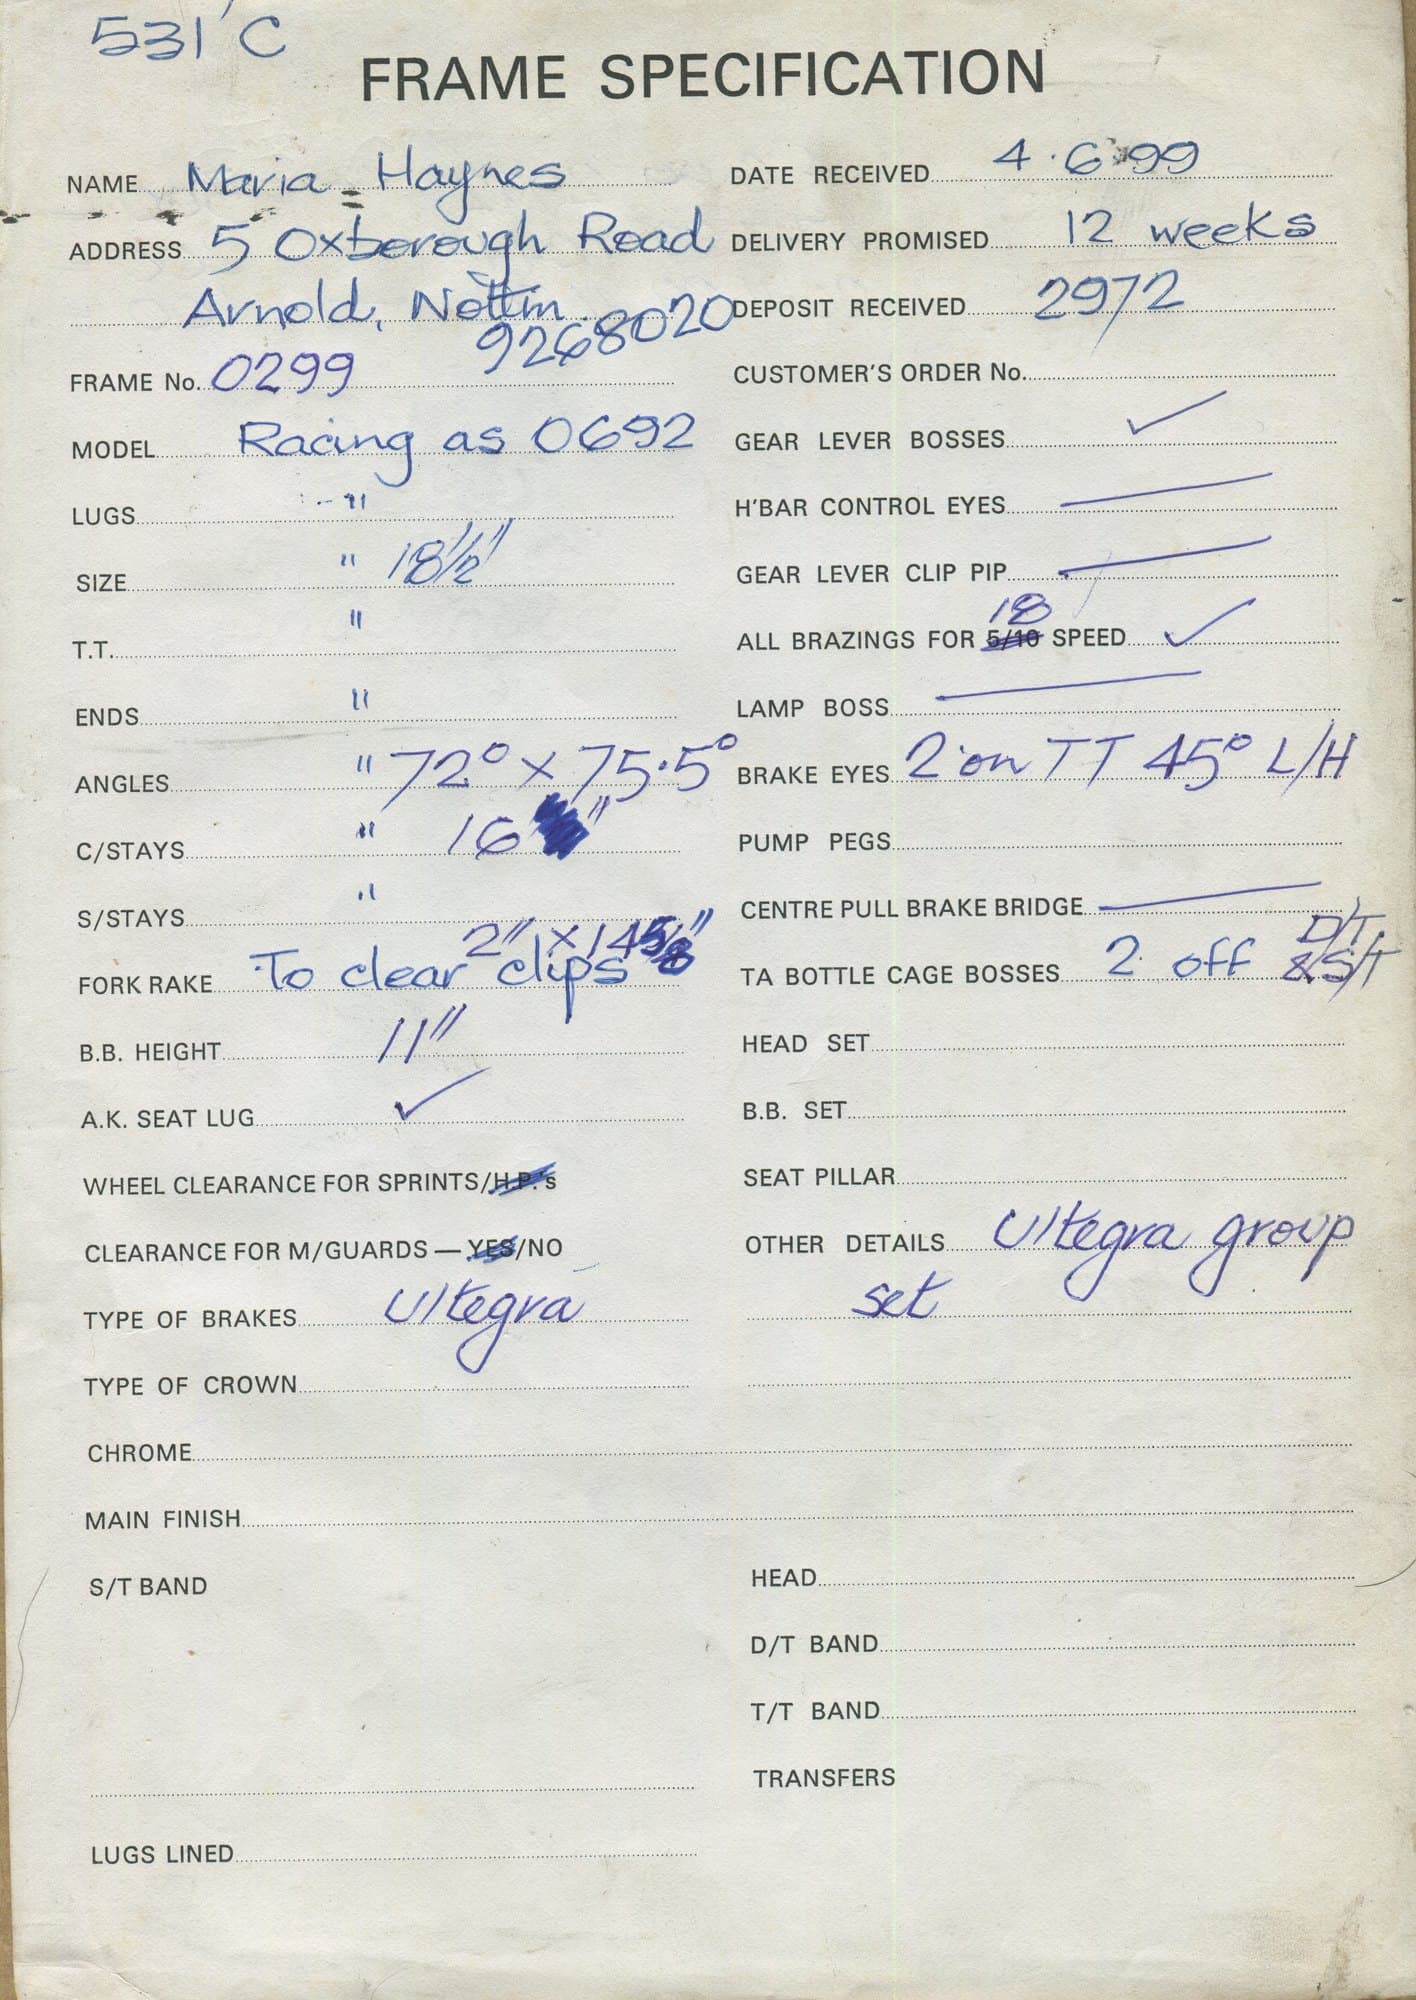 531 C
FRAME SPECIFICATION
NAME Maria Haynes
ADDRESS 5 Oxborough Road
Arnold, Nottm 9268020
FRAME No. 0299
MODEL Racing as 0692
LUGS "
SIZE " 18 1/2"
T.T. "
ENDS "
ANGLES " 72° x 75.5°
C/STAYS " 16 "
S/STAYS "
2" x 14 5/8"
FORK RAKE To clear clips
B.B. HEIGHT 11"
A.K. SEAT LUG ✓
WHEEL CLEARANCE FOR SPRINTS/H.P.'s
CLEARANCE FOR M/GUARDS — YES/NO
TYPE OF BRAKES Ultegra
TYPE OF CROWN
CHROME
MAIN FINISH
S/T BAND
LUGS LINED
DATE RECEIVED 4.6.99
DELIVERY PROMISED 12 weeks
DEPOSIT RECEIVED 2972
CUSTOMER'S ORDER No.
GEAR LEVER BOSSES ✓
H'BAR CONTROL EYES —
GEAR LEVER CLIP PIP —
18
ALL BRAZINGS FOR 5/10 SPEED ✓
LAMP BOSS —
BRAKE EYES 2 on TT 45° L/H
PUMP PEGS
CENTRE PULL BRAKE BRIDGE —
D/T
TA BOTTLE CAGE BOSSES 2 off & S/T
HEAD SET
B.B. SET
SEAT PILLAR
OTHER DETAILS Ultegra group
set
HEAD
D/T BAND
T/T BAND
TRANSFERS